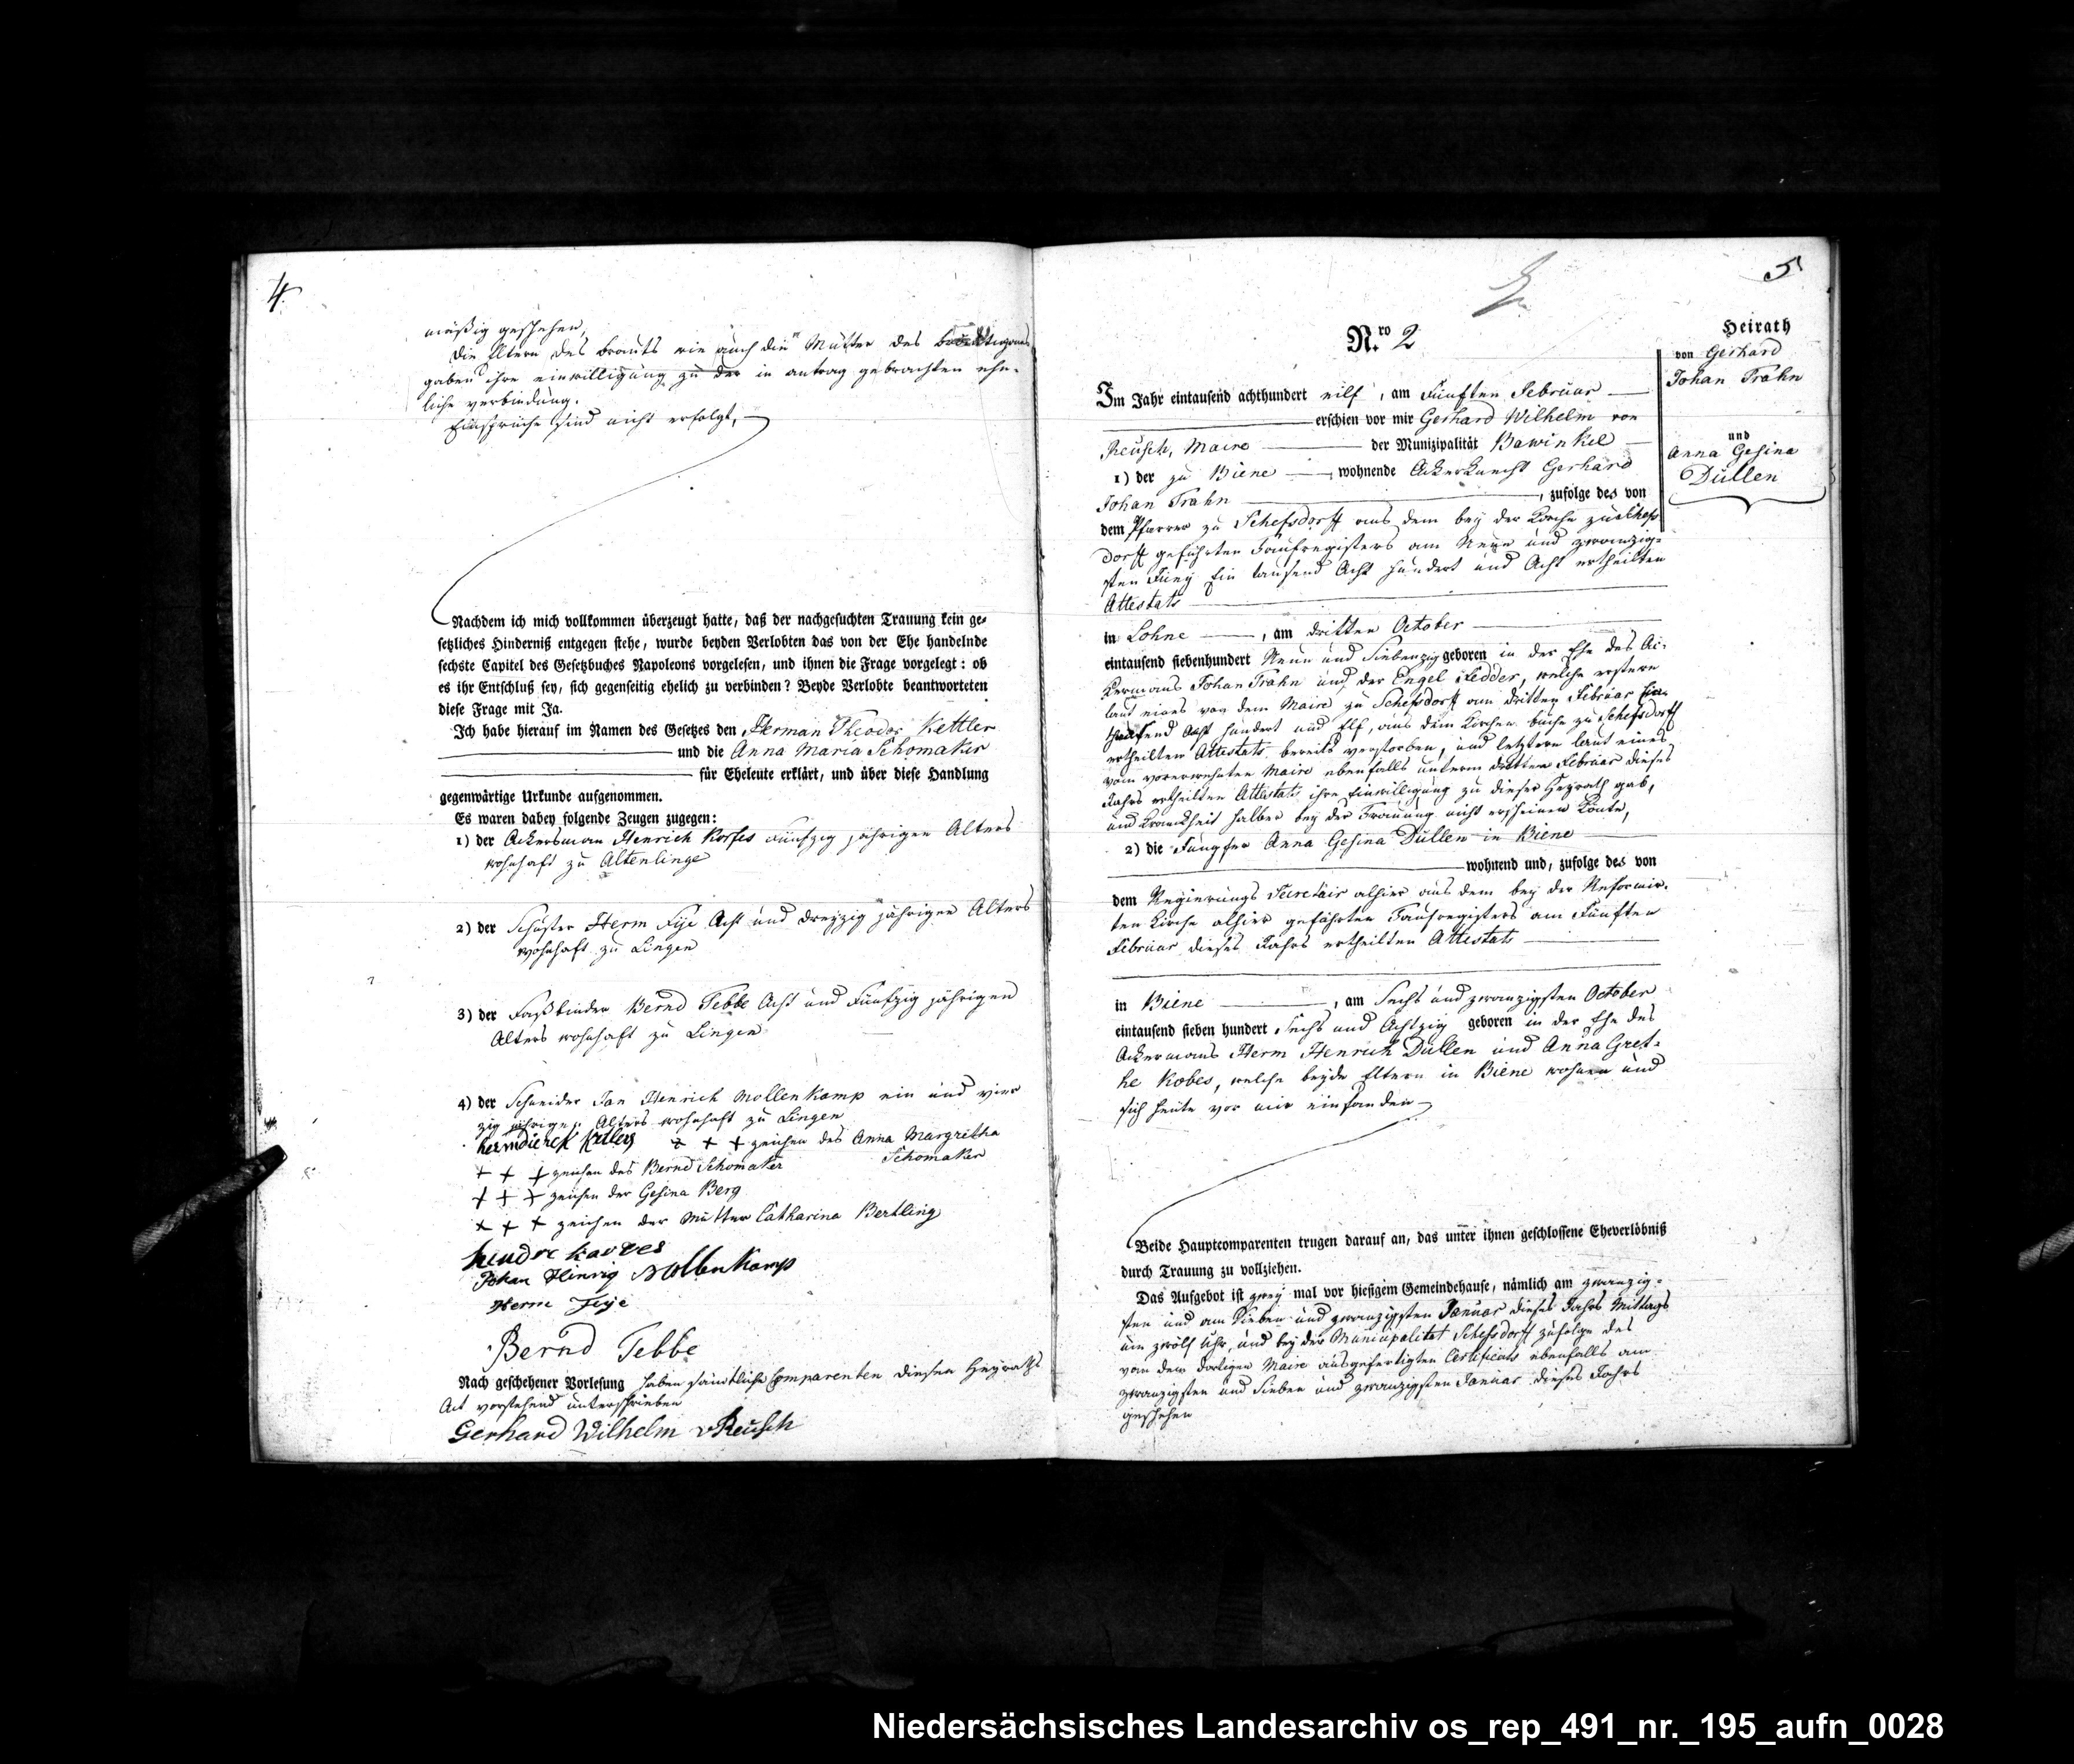 4.
mäßig geschehen,
die Eltern des Brauts wie auch die Mutter des
gaben ihre einwilligung zu der in antrag gebrachten ehe-
liche verbindung.
Einsprüche sind nicht erfolgt,
Nachdem ich mich vollkommen überzeugt hatte, daß der nachgesuchten Trauung kein ge-
setzliches Hinderniß entgegen stehe, wurde beyden Verlobten das von der Ehe handelnde
sechste Capitel des Gesetzbuches Napoleons vorgelesen, und ihnen die Frage vorgelegt: ob
es ihr Entschluß sey, sich gegenseitig ehelich zu verbinden? Beyde Verlobte beantworteten
diese Frage mit Ja.
Ich habe hierauf im Namen des Gesetzes den Herman Theodor Kettler
und die Anna Maria Schomaker
für Eheleute erklärt, und über diese Handlung
gegenwärtige Urkunde aufgenommen.
Es waren dabey folgende Zeugen zugegen:
1) der Ackersman Henrich Korfes Fünfzig jährigen Alters
wohnhaft zu Altenlinge
2) der Schuster Herm Feye Acht und dreyzig jährigen Alters
wohnhaft zu Lingen
3) der Faßbinder Bernd Tebbe Acht und Fünfzig jährigen
Alters wohnhaft zu Lingen
4) der Schneider Jan Henrich Mollenkamp ein und vier
zig jährigen Alters wohnhaft zu Lingen
+ + + zeichen des Anna Margretha
Schomaker
+ + + zeichen des Bernd Schomaker
+ + + zeichen der Gesina Berg
+ + + zeichen der Mutter Catharina Bertling
Johan Hinrig Mollenkamp
Herm Feye
Bernd Tebbe
Nach geschehener Vorlesung haben sämtliche Comparenten diesen Heyraths
Act vorstehend unterschrieben
Gerhard Wilhelm vReusch
5
N.ro 2
Heirath
von Gerhard
Johan Trahn
und
Anna Gesina
Düllen
Im Jahr eintausend achthundert eilf, am Fünften Februar
erschien vor mir Gerhard Wilhelm von
Reusch, Maire der Munizipalität Bawinkel
1) der zu Biene, wohnende Ackerknecht Gerhard
Johan Trahn, zufolge des von
dem Pfarrer zu Schefsdorff aus dem bey der Kirche zu Schefs
dorff geführten Taufregisters am Neun und zwanzig-
sten Juny Ein tausend Acht hundert und Acht ertheilten
Attestats
in Lohne, am dritten October
eintausend siebenhundert Neun und Siebenzig geboren in der Ehe des Ac-
kermans Johan Trahn und der Engel Fedder, welche erstere
laut eines von dem Maire zu Schefsdorff am dritten Februar Ein-
thausend Acht hundert und Elf, aus dem Kirchen buche zu Schefsdorff
ertheilten Attestats bereits verstorben, und letztere laut eines
vom vorerwehnten Maire ebenfalls unterm dritten Februar dieses
Jahrs ertheilten Attestats ihre Einwilligung zu dieser Heyrath gab,
und Kranckheit halber bey der Trauung nicht erscheinen konte,
2) die Jungfer Anna Gesina Düllen in Biene
wohnend und, zufolge des von
dem Regierungs Secretair alhier aus dem bey der Reformir-
ten Kirche alhier geführten Taufregisters am Fünften
Februar dieses Jahrs ertheilten Attestats
in Biene, am Sechs und zwanzigsten October
eintausend sieben hundert Sechs und Achtzig geboren in der Ehe des
Ackermans Herm Henrich Düllen und Anna Gret-
he Kobes, welche beyde Eltern in Biene wohnen und
sich heute vor mir einfanden
Beide Hauptcomparenten trugen darauf an, das unter ihnen geschlossene Eheverlöbniß
durch Trauung zu vollziehen.
Das Aufgebot ist zwey mal vor hiesigem Gemeindehause, nämlich am zwanzig-
sten und am Sieben und zwanzigsten Januar dieses Jahrs Mittags
um zwölf Uhr, und bey der Municipalitet Schefsdorff zufolge des
von dem dortigen Maire ausgefertigten Certificats ebenfalls am
zwanzigsten und Sieben und zwanzigsten Januar dieses Jahrs
geschehen
Niedersächsisches Landesarchiv os_rep_491_nr._195_aufn_0028